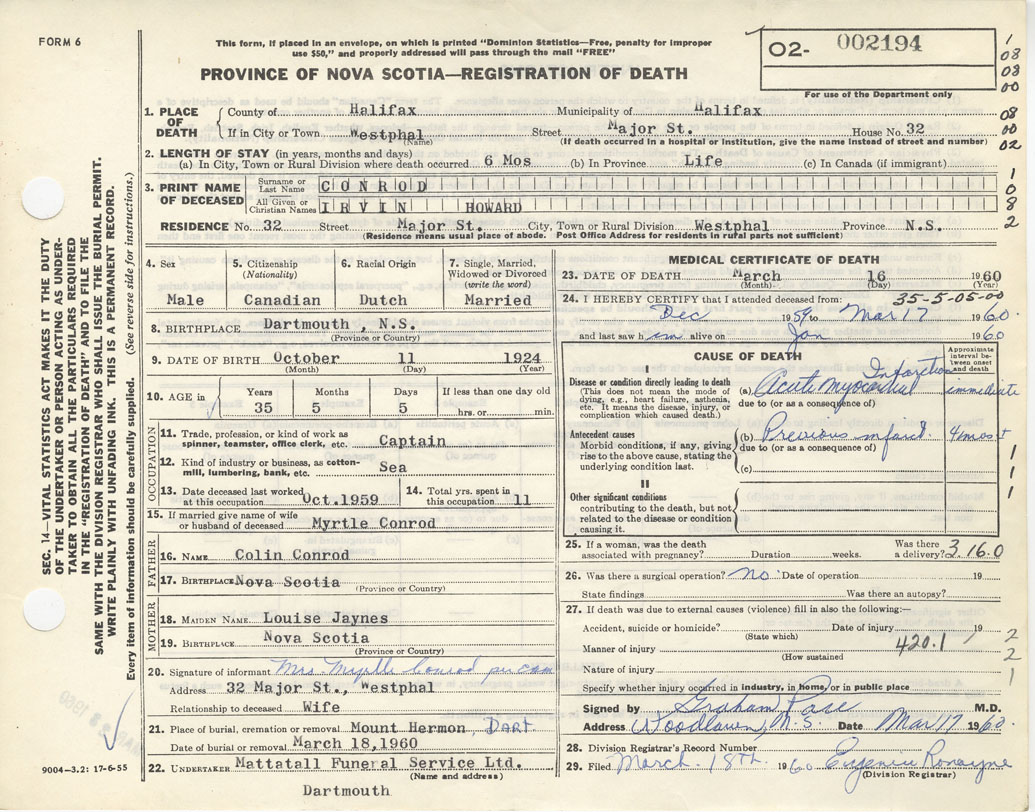 FORM 6
This form, if placed in an envelope, on which is printed "Dominion Statistics—Free, penalty for improper
use $50," and properly addressed will pass through the mail "FREE"
PROVINCE OF NOVA SCOTIA—REGISTRATION OF DEATH
O2- 002194
For use of the Department only
1
08
08
00
08
00
02
1
0
8
2
1. PLACE OF DEATH
County of Halifax Municipality of Halifax
If in City or Town Westphal Street Major St. House No. 32
(Name) (If death occurred in a hospital or institution, give the name instead of street and number)
2. LENGTH OF STAY (in years, months and days)
(a) In City, Town or Rural Division where death occurred 6 Mos (b) In Province Life (c) In Canada (if immigrant)
3. PRINT NAME OF DECEASED
Surname or Last Name CONROD
All Given or Christian Names IRVIN HOWARD
RESIDENCE No. 32 Street Major St. City, Town or Rural Division Westphal Province N.S.
(Residence means usual place of abode. Post Office Address for residents in rural parts not sufficient)
SEC. 14—VITAL STATISTICS ACT MAKES IT THE DUTY
OF THE UNDERTAKER OR PERSON ACTING AS UNDER-
TAKER TO OBTAIN ALL THE PARTICULARS REQUIRED
IN THE "REGISTRATION OF DEATH" AND TO FILE THE
SAME WITH THE DIVISION REGISTRAR WHO SHALL ISSUE THE BURIAL PERMIT.
WRITE PLAINLY WITH UNFADING INK. THIS IS A PERMANENT RECORD.
Every item of information should be carefully supplied. (See reverse side for instructions.)
4. Sex
Male
5. Citizenship
(Nationality)
Canadian
6. Racial Origin
Dutch
7. Single, Married,
Widowed or Divorced
(write the word)
Married
8. BIRTHPLACE Dartmouth , N.S.
(Province or Country)
9. DATE OF BIRTH October 11 1924
(Month) (Day) (Year)
10. AGE in
Years Months Days If less than one day old
35 5 5 hrs. or min.
OCCUPATION
11. Trade, profession, or kind of work as
spinner, teamster, office clerk, etc. Captain
12. Kind of industry or business, as cotton-
mill, lumbering, bank, etc. Sea
13. Date deceased last worked
at this occupation Oct.1959
14. Total yrs. spent in
this occupation 11
15. If married give name of wife
or husband of deceased Myrtle Conrod
FATHER
16. NAME Colin Conrod
17. BIRTHPLACE Nova Scotia
(Province or Country)
MOTHER
18. MAIDEN NAME Louise Jaynes
19. BIRTHPLACE Nova Scotia
(Province or Country)
20. Signature of informant Mrs. Myrtle Conrod per
Address 32 Major St., Westphal
Relationship to deceased Wife
21. Place of burial, cremation or removal Mount Hermon, DART.
Date of burial or removal March 18,1960
22. UNDERTAKER Mattatall Funeral Service Ltd.
(Name and address)
Dartmouth
9004—3.2: 17-6-55
1960
MEDICAL CERTIFICATE OF DEATH
23. DATE OF DEATH March 16 1960
(Month) (Day) (Year)
24. I HEREBY CERTIFY that I attended deceased from: 35-5-05-00
Dec 1959 to Mar 17 1960.
and last saw him alive on Jan 1960
CAUSE OF DEATH
Approximate
interval be-
tween onset
and death
I
Disease or condition directly leading to death
(This does not mean the mode of
dying, e.g., heart failure, asthenia,
etc. It means the disease, injury, or
complication which caused death.)
(a) Acute Myocardial Infarction immediate
due to (or as a consequence of)
Antecedent causes
Morbid conditions, if any, giving
rise to the above cause, stating the
underlying condition last.
(b) Previous infarct. 4 mos
due to (or as a consequence of)
(c)
1
1
1
II
Other significant conditions
contributing to the death, but not
related to the disease or condition
causing it.
25. If a woman, was the death
associated with pregnancy? Duration weeks. Was there
a delivery? 3.16.0
26. Was there a surgical operation? no Date of operation 19
State findings Was there an autopsy?
27. If death was due to external causes (violence) fill in also the following:—
Accident, suicide or homicide? Date of injury 19 2
(State which)
Manner of injury 420.1 2
(How sustained
Nature of injury 1
Specify whether injury occurred in industry, in home, or in public place
Signed by Graham Pace M.D.
Address Woodlawn, N.S. Date Mar 17 1960.
28. Division Registrar's Record Number
29. Filed March 18th. 1960 Eugenie Ronayne
(Division Registrar)